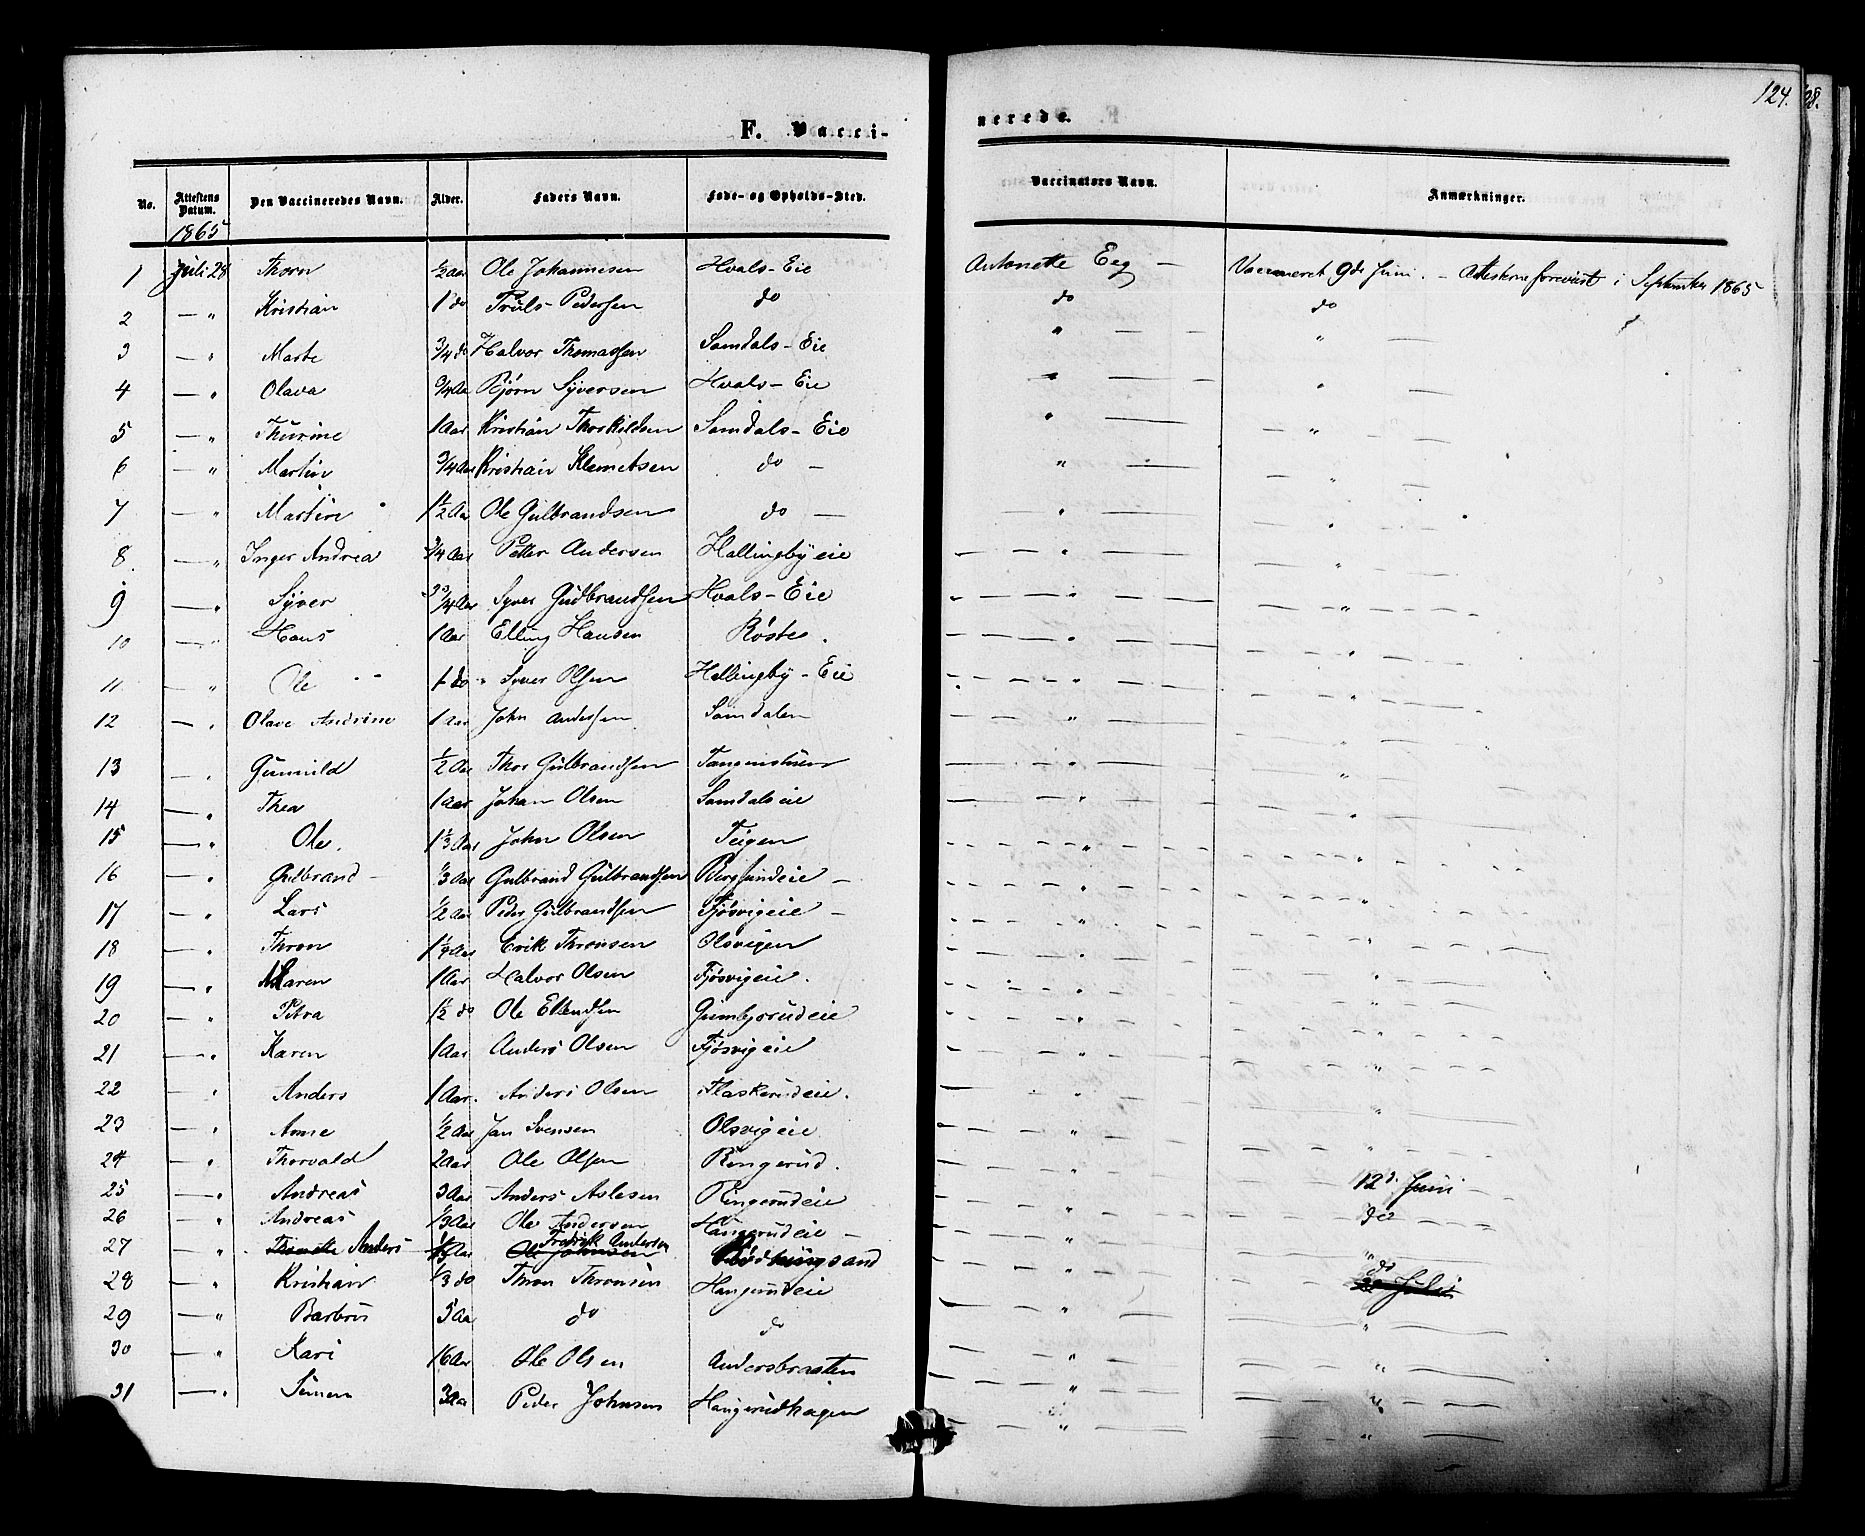 124.
F. Vacci-
nerede.
No. Attestens Datum. Den Vaccineredes Navn. Alder. Faders Navn. Føde- og Opholds-Sted. Vaccinators Navn. Anmærkninger.
1865
1 Juli 28 Thorn ½ Aar Ole Johannesen Hvals-Eie Antonette Eeg — Vaccineret 9de Juni. — Attesterne forevist i September 1865
2 — " Kristian 1 do Truls Pedersen do do do
3 — " Marte ¾ do Halvor Thomassen Samdals-Eie " — — " —
4 — " Olava ¾ Aar Bjørn Syversen Hvals-Eie " — — " —
5 — " Thurine 1 Aar Kristian Thorkildsen Samdals-Eie " — — " —
6 — " Martin ¾ Aar Kristian Klemetsen do — " — — " —
7 — " Martin 1½ Aar Ole Gulbrandsen do — " — "
8. — " Inger Andrea ¾ Aar Petter Andersen Hallingbyeie — — " — "
9 — " Syver 3¾ Aar Syver Gudbrandsen Hvals-Eie " — — " — "
10 — " Hans 1 Aar Elling Hansen Røste. — — " — "
11 — " Ole 1 do Syver Olsen Hallingby-Eie " — "
12 — " Olave Andrine 1 Aar John Andersen Samdalen — " — "
13 — " Gunnild ½ Aar Thor Gulbrandsen Tangenstuen — " — "
14 — " Thea 1 Aar Johan Olsen Samdalseie — — " — "
15 — " Ole. 1⅓ Aar John Olsen Teigen — — " — "
16 — " Gulbrand — ⅓ Aar Gulbrand Gulbrandsen Bergsundeie — — " — "
17 — " Lars ½ Aar Peder Gulbrandsen Fjøsvigeie — — " — "
18 — " Thron 1¼ Aar Erik Thronsen Olsvigen — " — "
19 — " Maren 1 Aar Halvor Olsen Fjøsvigeie. — " — "
20 — " Petra 1½ do Ole Ellendsen Gumbjørudeie — " — "
21 — " Karen 1 Aar Anders Olsen Fjøsvigeie — " — "
22 — " Anders 1 Aar. Anders Olsen Flaskerudeie. — " — "
23 — " Anne ½ Aar Jan Svensen Olsvigeie — " — "
24 — " Thorvald 2 Aar Ole Olsen Ringerud. — " —
25 — " Andreas 3 Aar Anders Aslesen Ringerudeie — " — 12te Juni —
26 — " Andreas ⅓ Aar Ole Andersen Hangerudeie — " — 9de
27 — " Anders Aar Fredrik Andersen Ole Johnsen
28 — " Kristian ⅓ do Thron Thronsen Hangerudeie — " — do
29 — " Barbro 5 Aar do do — " — "
30 — " Kari 16 Aar Ole Olsen Andersbraaten — " — "
31 — " Simen 3 Aar Peder Johnsen Hangerudhagen — " — "